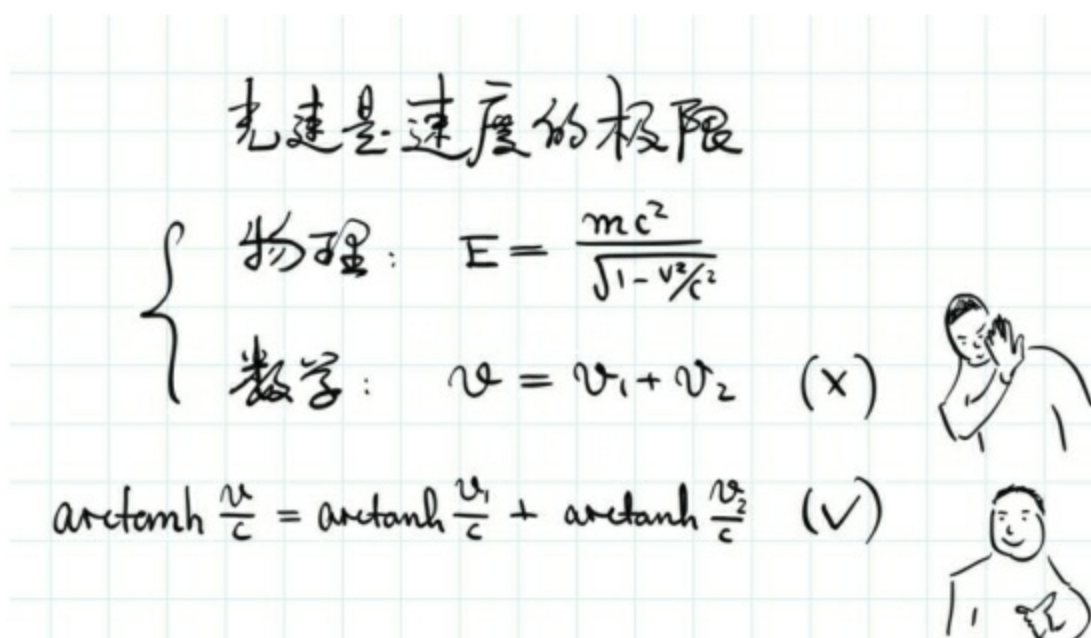 光速是速度的极限
物理: E = mc²/√(1 - v²/c²)
数学: v = v₁ + v₂ (×)
arctanh v/c = arctanh v₁/c + arctanh v₂/c (√)